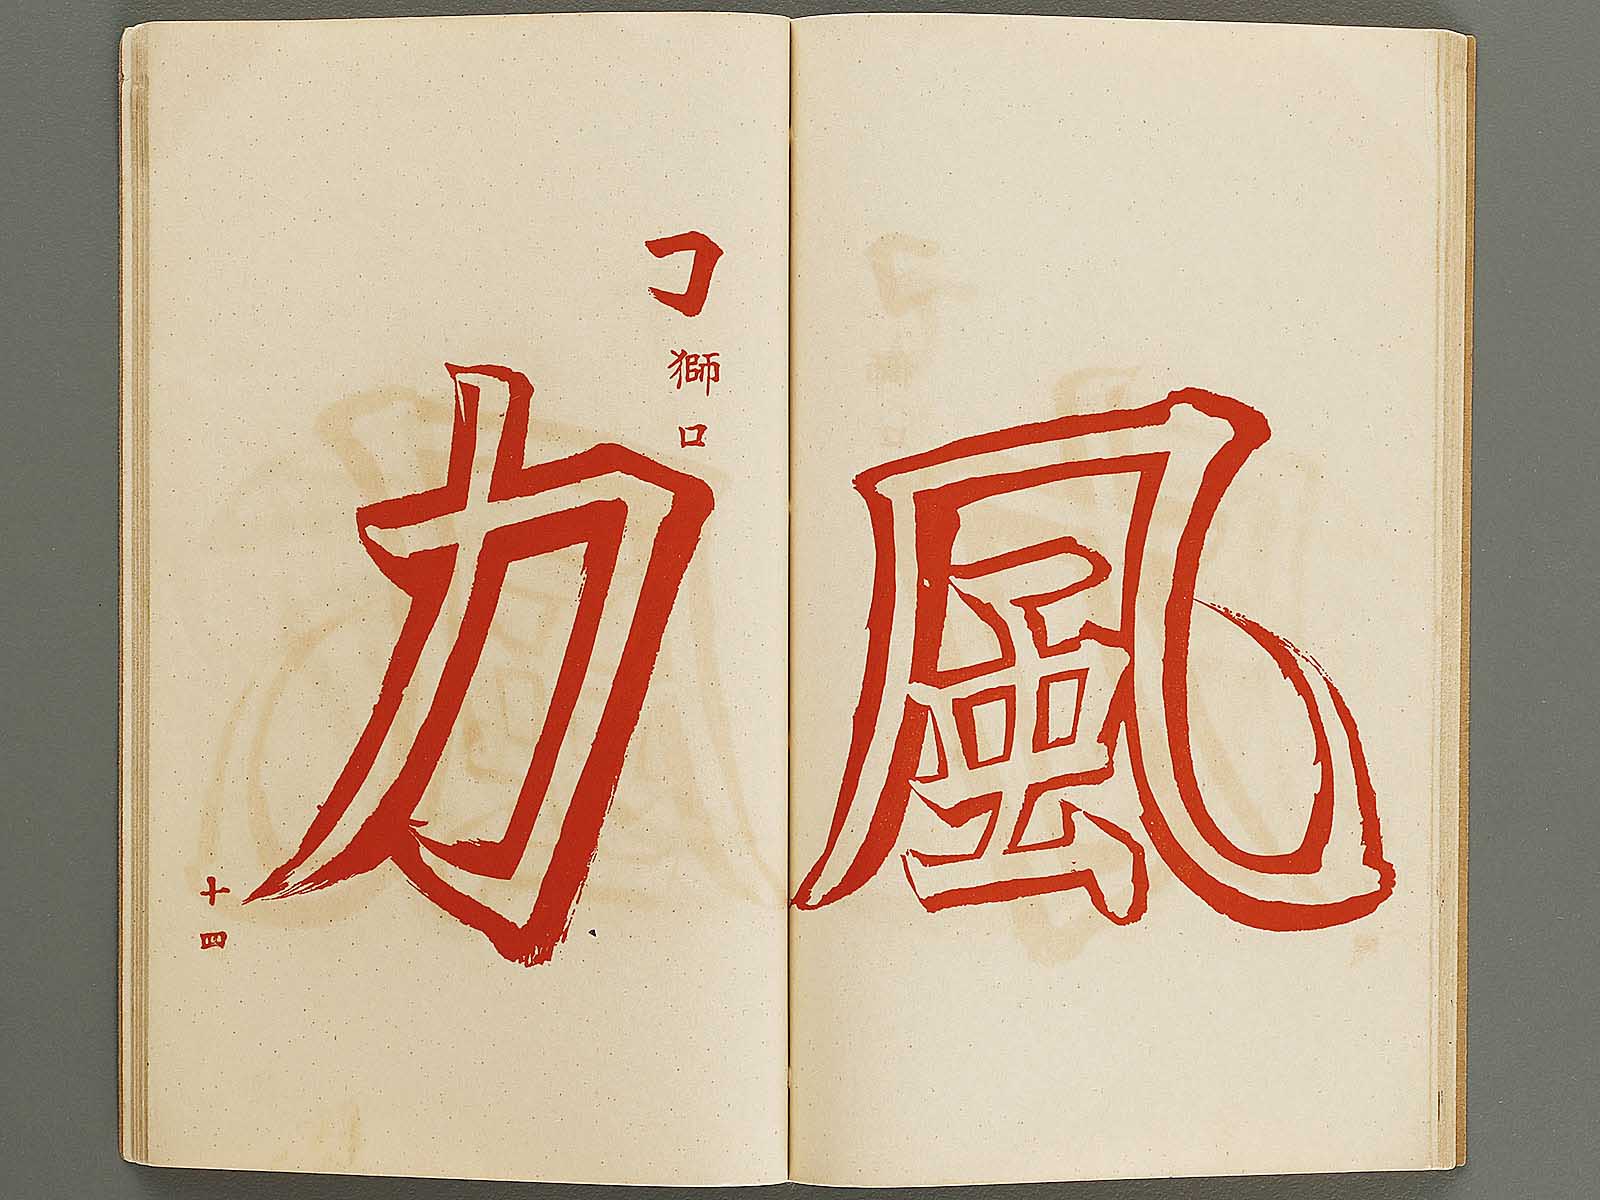 風
㇆
獅口
力
十四